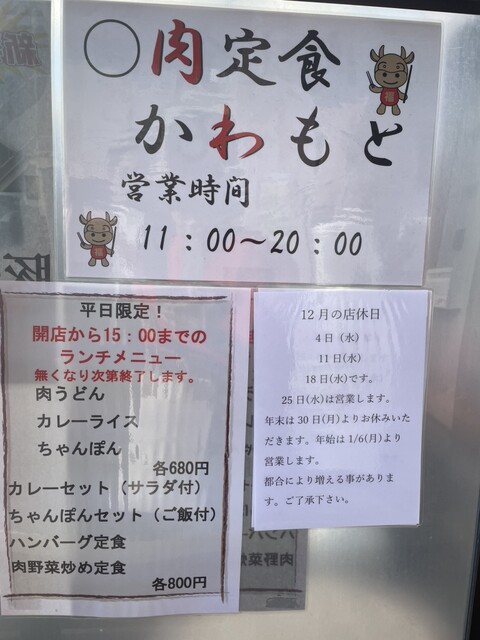 〇肉定食
かわもと
営業時間
11：00～20：00
平日限定！
開店から15：00までの
ランチメニュー
無くなり次第終了します。
肉うどん
カレーライス
ちゃんぽん
各680円
カレーセット（サラダ付）
ちゃんぽんセット（ご飯付）
ハンバーグ定食
肉野菜炒め定食
各800円
12月の店休日
4日（水）
11日(水)
18日(水)です。
25日(水)は営業します。
年末は30日(月)よりお休みいた
だきます。年始は1/6(月)より
営業します。
都合により増える事がありま
す。ご了承下さい。